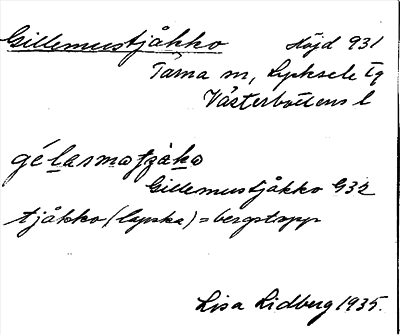 Gillemustjåkko Höjd 931
Tärna sn, Lycksele tg
Västerbottens l
gélasmøtjåkø
Gillemustjåkko 932
tjåkko (lapska) = bergstopp
Lisa Lidberg 1935.